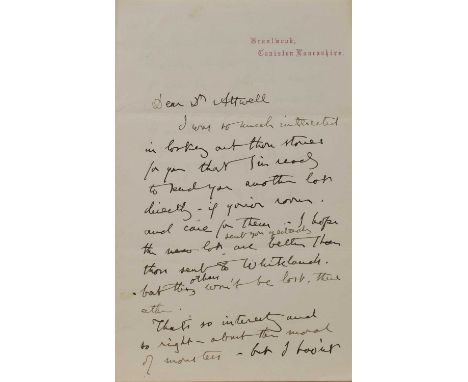 Brantwood,
Coniston Lancashire.
Dear Dr Attwell
I was so much interested
in looking out those stones
for you that I'm ready
to send you another lot
directly - if you've room.
and care for them - I hope
sent you yesterday
the new lot are better than
those sent to Whitelands.
others
but they won't be lost,
That's so interesting and
so right - about the moral
of monsters - but I hav'nt